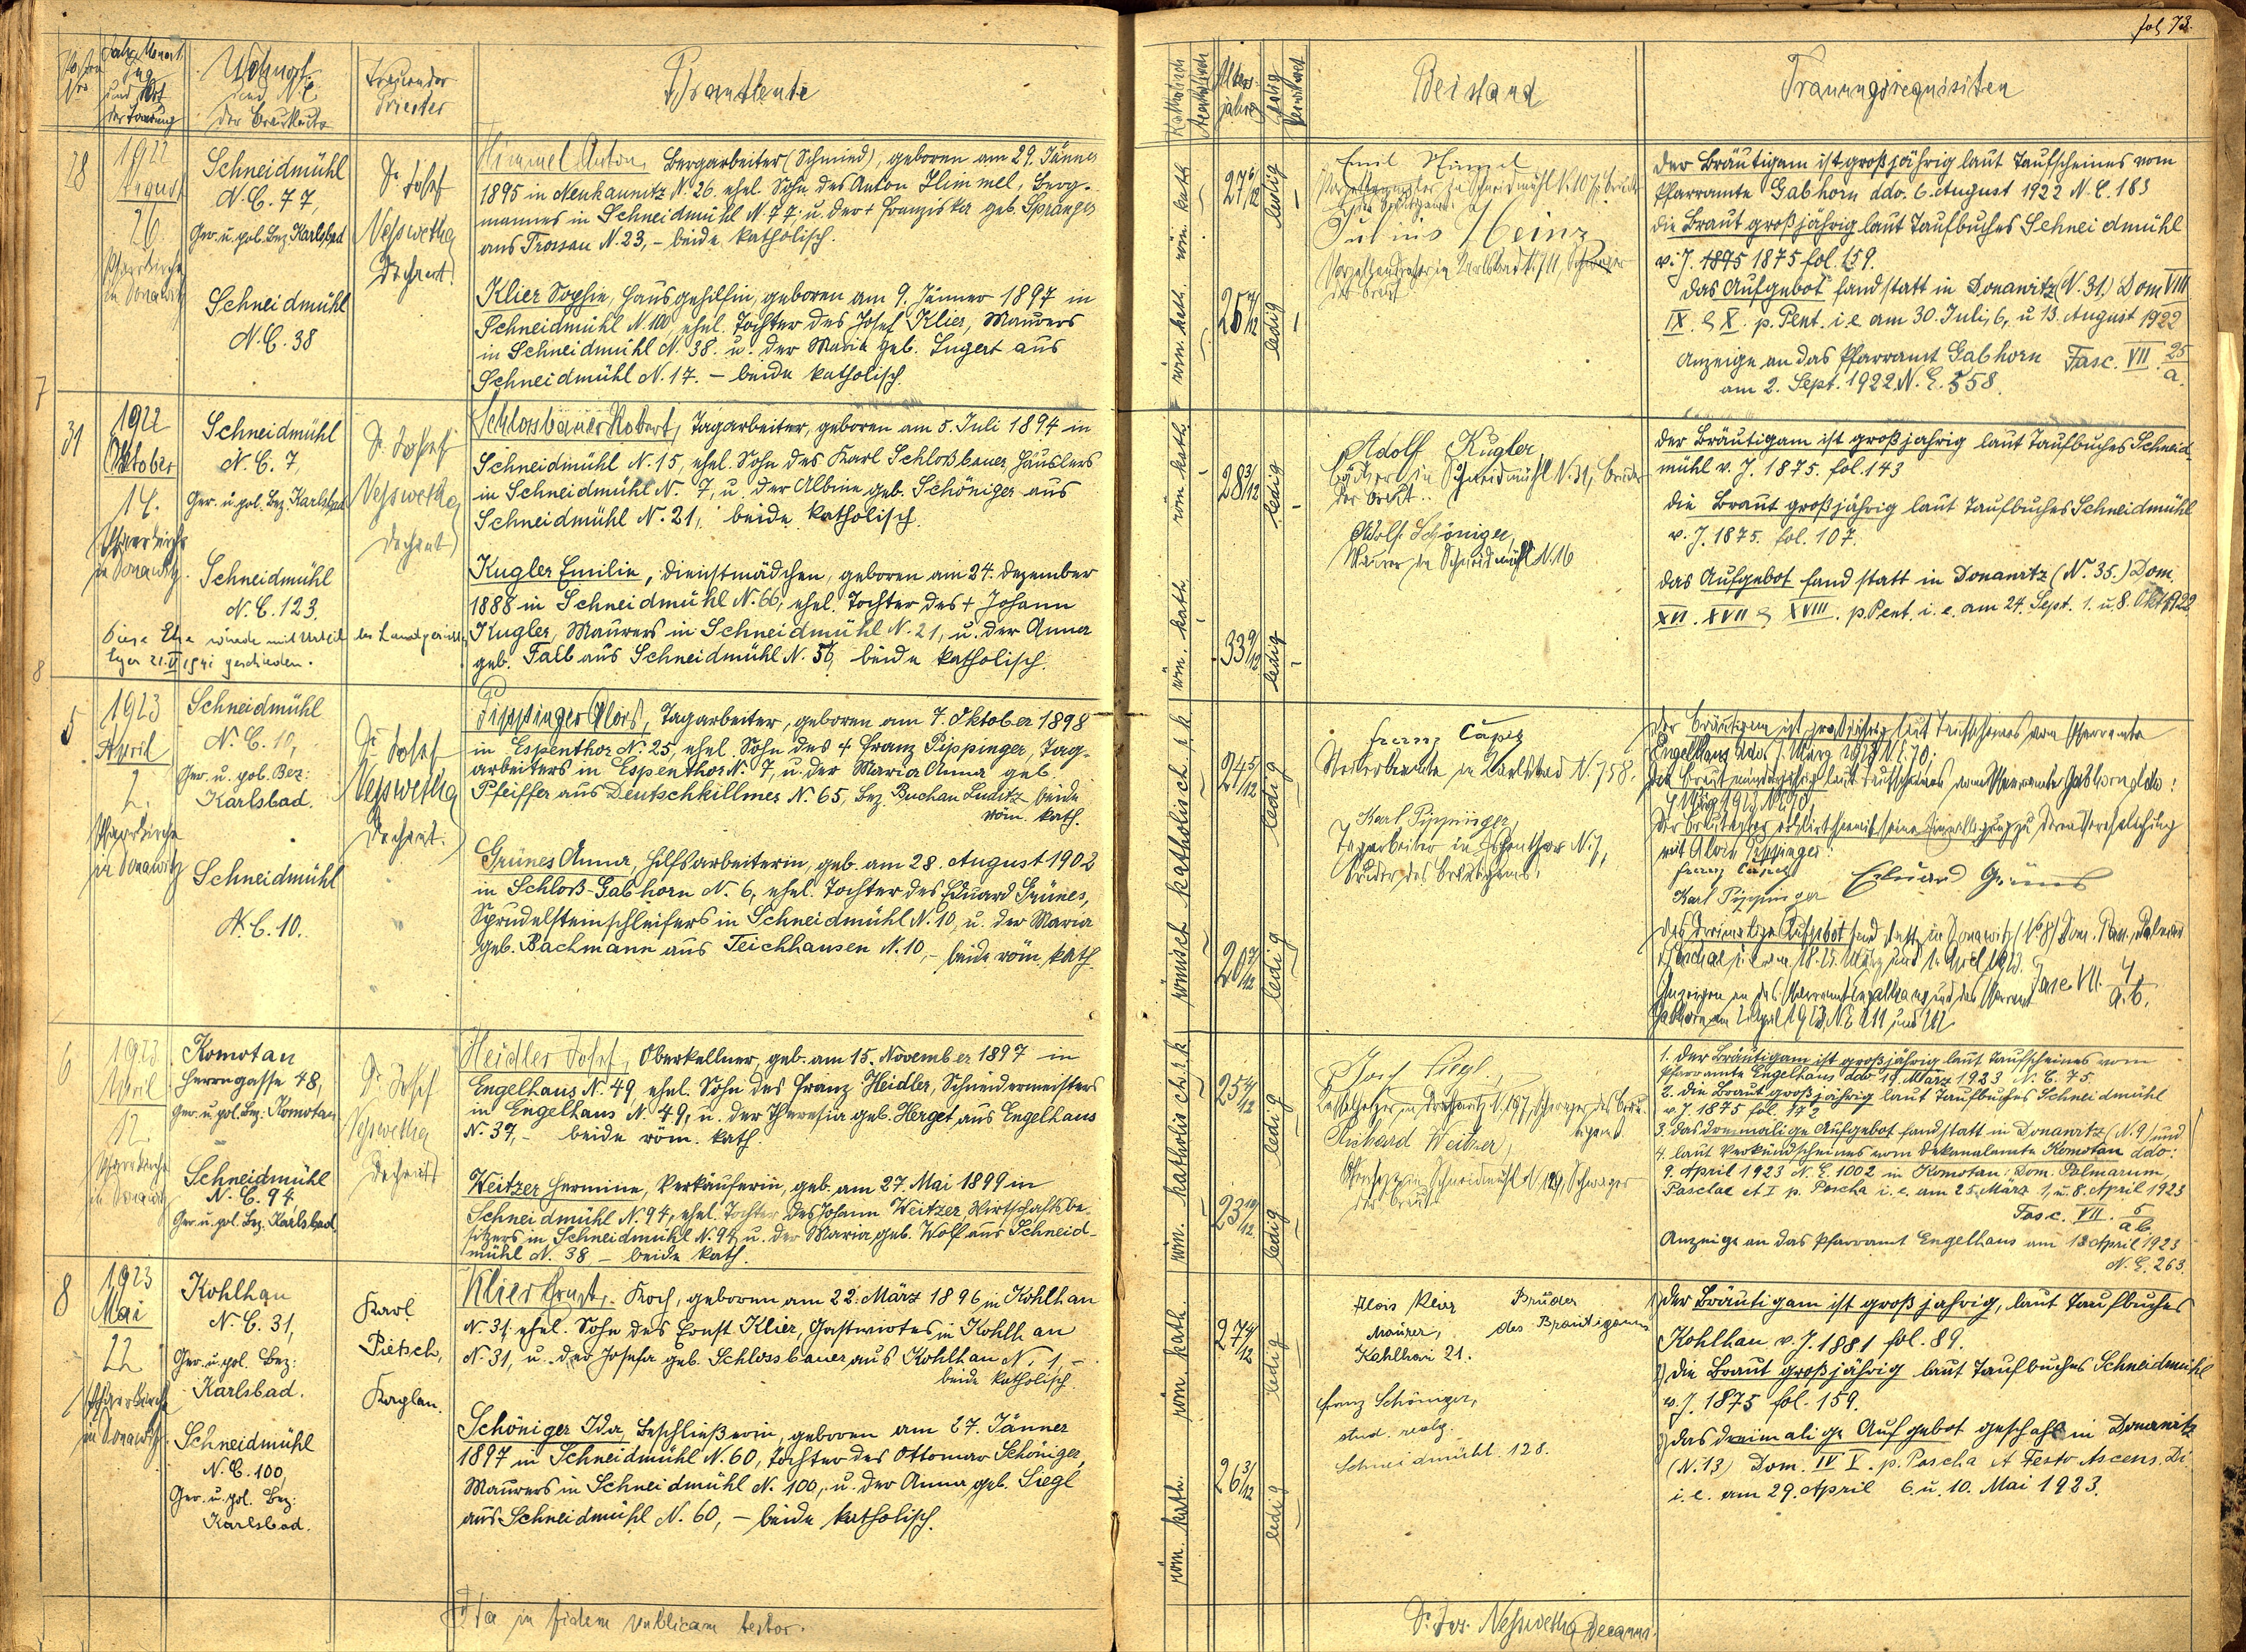 fol. 73.
Posten Nro
Jahr, Monat, Tag und Ort der Trauung
Wohnort und N.C. der Brautleute
Trauender Priester
Brautleute
Alters-jahre
ledig
verwitwet
Beistand
Trauungsrequisiten
28
1922
August
26
Pfarrkirche
in Donawitz
Schneidmühl
N.C. 77,
Ger. u. pol. Bez. Karlsbad
Schneidmühl
N.C. 38
Dr. Josef
Nesswetha
Dechant.
Himmel Anton, Bergarbeiter (Schmied), geboren am 29. Jänner
1895 in Neukaunitz N. 26. ehel. Sohn des Anton Himmel, Berg-
mannes in Schneidmühl N. 77. u. der + Franziska geb. Spranger
aus Trossau N. 23, - beide katholisch.
Klier Sophie, Hausgehilfin, geboren am 9. Jänner 1897 in
Schneidmühl N. 100, ehel. Tochter des Josef Klier, Maurers
in Schneidmühl N. 38. u. der Maria geb. Lugert aus
Schneidmühl N. 17. - beide katholisch.
röm. kath.
27 6/12
ledig
röm. kath.
25 7/12
ledig
Emil Himmel
Julius Heinz
Porzellandreher in Karlsbad
der Braut
Der Bräutigam ist großjährig laut Taufscheines vom
Pfarramte Gabhorn ddo. 6. August 1922 N.E. 183
Die Braut großjährig laut Taufbuches Schneidmühl
v. J. 1895 1875 fol. 159.
Das Aufgebot fand statt in Donawitz (N. 31.) Dom VIII
IX. & X. p. Pent. i. e. am 30. Juli, 6, u 13. August 1922
Anzeige an das Pfarramt Gabhorn Fasc. VII. 25/a.
am 2. Sept. 1922. N. E. 558.
7
31
1922
Oktober
14.
Pfarrkirche
in Donawitz.
Schneidmühl
N.C. 7,
Ger. u. pol. Bez. Karlsbad
Schneidmühl
N.C. 123.
Dr. Josef
Nesswetha
Dechant
Schlossbauer Robert, Tagarbeiter, geboren am 5. Juli 1894 in
Schneidmühl N. 15, ehel. Sohn des Karl Schloßbauer, Häuslers
in Schneidmühl N. 7, u. der Albine geb. Schöniger aus
Schneidmühl N. 21, beide katholisch.
Kugler Emilie, Dienstmädchen, geboren am 24. Dezember
1888 in Schneidmühl N. 66, ehel. Tochter des + Johann
Kugler, Maurers in Schneidmühl N. 21, u. der Anna
geb. Fall aus Schneidmühl N. 56, beide katholisch.
Diese Ehe wurde mit Urteil des Landgerichts
Eger 21. VI 1941 geschieden.
röm. kath.
28 3/12
ledig
röm. kath.
33 9/12
ledig
Adolf Kugler
Bäcker in Schneidmühl N. 31, Bruder
der Braut.
Adolf Schöniger,
Maurer in Schneidmühl N. 16
Der Bräutigam ist großjährig laut Taufbuches Schneid-
mühl v. J. 1875. fol. 143
Die Braut großjährig laut Taufbuches Schneidmühl
v. J. 1875. fol. 107.
Das Aufgebot fand statt in Donawitz (N. 35.) Dom.
XVI. XVII & XVIII. p. Pent. i. e. am 24. Sept. 1. u. 8. Okt. 1922
8
5
1923
April
2.
Pfarrkirche
in Donawitz
Schneidmühl
N.C. 10,
Ger. u. pol. Bez:
Karlsbad.
Schneidmühl
N.C. 10.
Dr. Josef
Nesswetha
Dechant.
Pippinger Alois, Tagarbeiter, geboren am 7. Oktober 1898
in Espenthor N. 25, ehel. Sohn des + Franz Pippinger, Tag-
arbeiters in Espenthor N. 7, u. der Maria Anna geb.
Pfeiffer aus Deutschkillmes N. 65, Bez. Buchau Luditz beide
röm. kath.
Grünes Anna, Hilfsarbeiterin, geb. am 28. August 1902
in Schloß-Gabhorn N. 6, ehel. Tochter des Eduard Grünes,
Sprudelsteinschleifers in Schneidmühl N. 10, u. der Maria
geb. Bachmann aus Teichhausen N. 10, - beide röm. kath.
römisch katholisch
24 5/12
ledig
20 7/12
ledig
Franz Capek
Karlsbad N. 758.
Karl Pippinger,
Tagarbeiter in Espenthor N. 7,
Bruder des Bräutigams.
Der Bräutigam ist großjährig laut Taufscheines vom Pfarramte
Die Braut minderjährig laut Taufscheines vom Pfarramte Gabhorn ddo:
Der Brautvater erklärt hiemit seine Einwilligung zu deren Verehelichung
mit Alois Pippinger.
Franz Capek
Karl Pippinger Eduard Grünes
Das dreimalige Aufgebot fand statt in Donawitz
Fasc VII. 4./a.b.
6
1923
April
12.
Pfarrkirche
in Donawitz
Komotau
Herrngasse 48,
Ger. u. pol. Bez. Komotau
Schneidmühl
N.C. 94
Ger. u. pol. Bez. Karlsbad
Dr. Josef
Nesswetha
Dechant
Heidler Josef, Oberkellner, geb. am 15. November 1897 in
Engelhaus N. 49, ehel. Sohn des Franz Heidler, Schneidermeisters
in Engelhaus N. 49, u. der Theresia geb. Herget aus Engelhaus
N. 37, - beide röm. kath.
Weitzer Hermine, Verkäuferin, geb. am 27. Mai 1899 in
Schneidmühl N. 94, ehel. Tochter des Johann Weitzer, Wirtschaftsbe-
sitzers in Schneidmühl N. 94, u. der Maria geb. Wolf aus Schneid-
mühl N. 38 - beide kath.
25 4/12
ledig
röm. katholisch
23 10/12
ledig
Richard Weitzer,
in Schneidmühl N. 129, Schwager
der Braut
1. Der Bräutigam ist großjährig laut Taufscheines vom
Pfarramte Engelhaus ddo 19. März 1923 N.E. 75.
2. Die Braut großjährig laut Taufbuches Schneidmühl
v. J. 1875 fol. 172
3. Das dreimalige Aufgebot fand statt in Donawitz (N. 9) und
4. laut Verkündscheines vom Dekanalamte Komotau ddo:
9. April 1923 N.E. 1002 in Komotau: Dom. Palmarum,
Paschae et I p. Pascha i. e. am 25. März 1, u. 8. April 1923
Fasc. VII. 5/a b
Anzeige an das Pfarramt Engelhaus am 13. April 1923
N.E. 263.
8
1923
Mai
22
Pfarrkirche
in Donawitz.
Kohlhau
N.C. 31,
Ger. u. pol. Bez:
Karlsbad.
Schneidmühl
N.C. 100,
Ger. u. pol. Bez:
Karlsbad.
Karl
Pietsch,
Kaplan.
Klier Ernst, Koch, geboren am 22. März 1896 in Kohlhau
N. 31 ehel. Sohn des Ernst Klier, Gastwirtes in Kohlhau
N. 31, u. der Josefa geb. Schlossbauer aus Kohlhau N. 1, -
beide katholisch.
Schöniger Ida, Beschließerin, geboren am 27. Jänner
1897 in Schneidmühl N. 60, Tochter des Ottomar Schöniger,
Maurers in Schneidmühl N. 100, u. der Anna geb. Siegl
aus Schneidmühl N. 60, - beide katholisch.
röm. kath.
27 2/12
ledig
röm. kath.
26 3/12
ledig
Alois Klier Bruder
Maurer, des Bräutigams
Kohlhau 21.
Franz Schöniger,
stud. realg.
Schneidmühl 128.
1) Der Bräutigam ist großjährig, laut Taufbuches
Kohlhau v. J. 1881 fol. 89.
2) Die Braut großjährig laut Taufbuches Schneidmühl
v. J. 1875 fol. 159.
3) Das dreimalige Aufgebot geschah in Donawitz
(N. 13) Dom. IV V. p. Pascha et Festo Ascens. Di
i. e. am 29. April 6. u. 10. Mai 1923.
Ita in fidem publicam testor.
Dr. Jos. Nesswetha, Decanus.